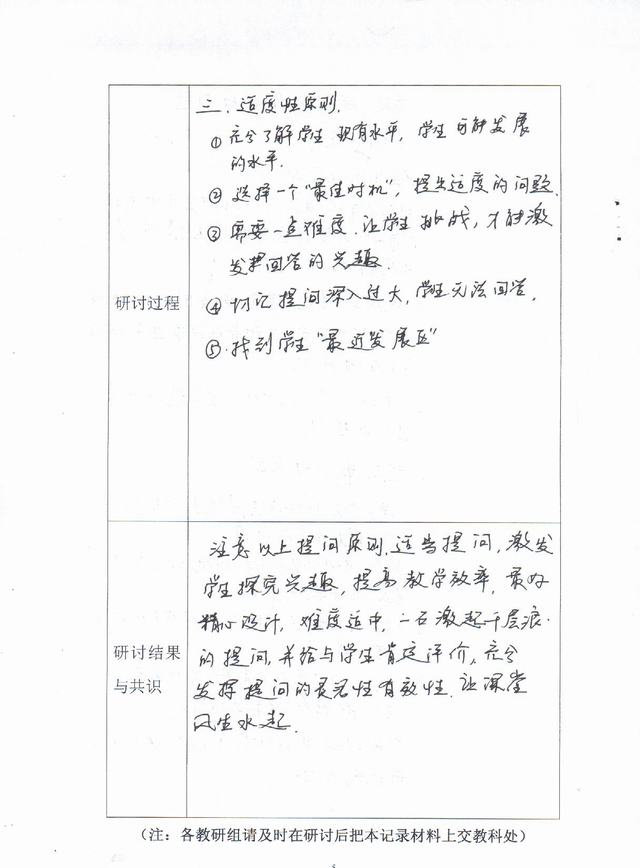 三.适度性原则.
①充分了解学生现有水平,学生可能发展
的水平.
②选择一个“最佳时机”,提出适度的问题.
③需要一点难度.让学生挑战,才能激
发起回答的兴趣.
④切记提问深入过大,学生无法回答.
研讨过程
⑤.找到学生“最近发展区”
注意以上提问原则.适当提问,激发
学生探究兴趣,提高教学效率,最好
精心设计,难度适中,一石激起千层浪.
的提问,并给与学生肯定评价,充分
研讨结果
与共识
发挥提问的灵活性有效性.让课堂
风生水起.
(注:各教研组请及时在研讨后把本记录材料上交教科处)